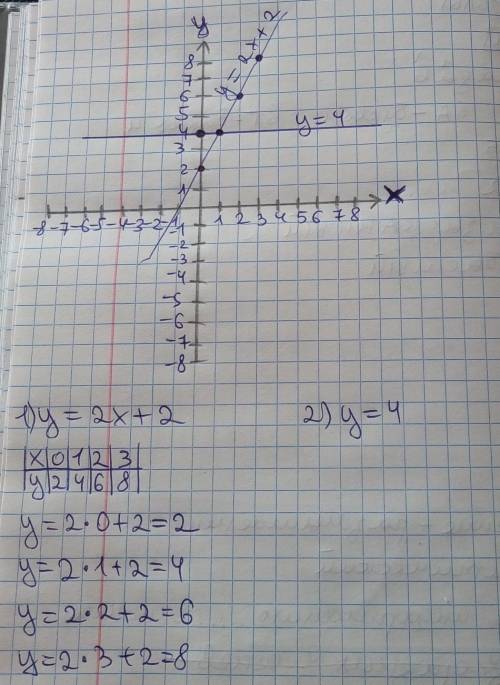 y
y = 2x x 2
8
7
6
5
4
y = 4
3
2
1
x
-8 -7 -6 -5 -4 -3 -2 -1 1 2 3 4 5 6 7 8
-1
-2
-3
-4
-5
-6
-7
-8
1) y = 2x + 2
2) y = 4
x 0 1 2 3
y 2 4 6 8
y = 2 · 0 + 2 = 2
y = 2 · 1 + 2 = 4
y = 2 · 2 + 2 = 6
y = 2 · 3 + 2 = 8